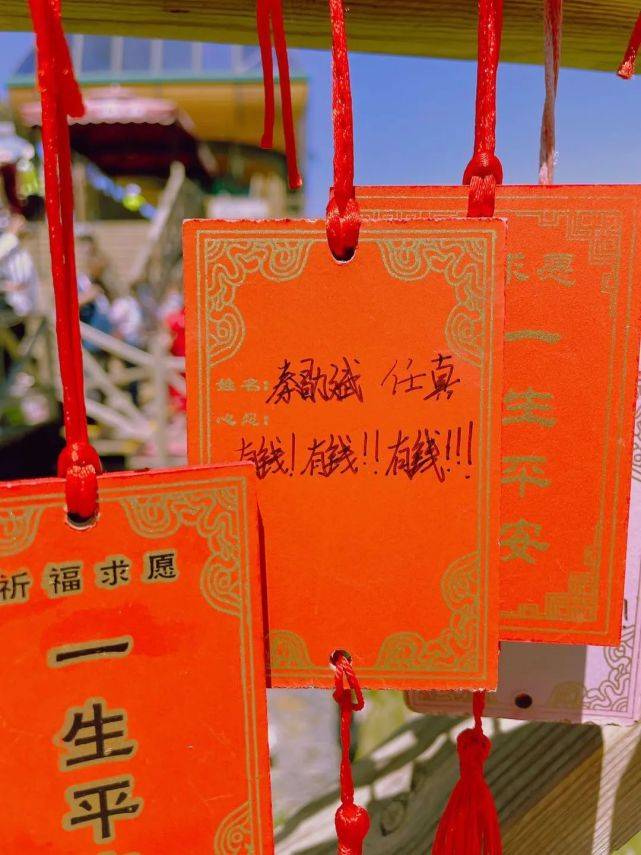 姓名: 秦勋斌 任真
心愿:
有钱! 有钱!! 有钱!!!
祈福求愿
一生平
求愿
一生平安